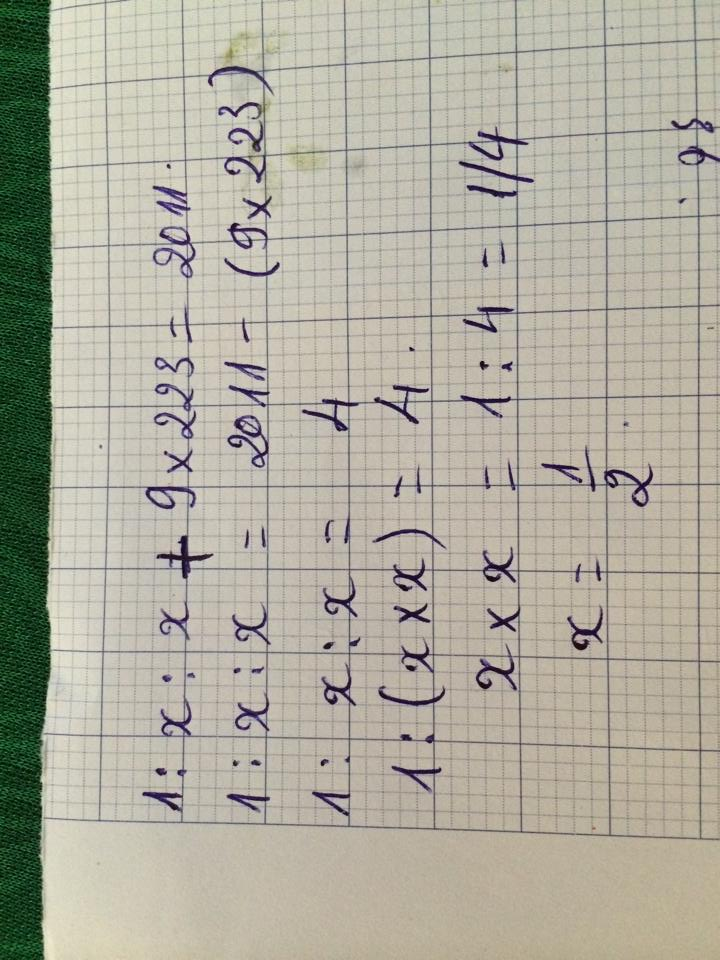 1 : x : x + 9 x 223 = 2011.
1 : x : x = 2011 - (9 x 223)
1 : x : x = 4
1 : (x x x) = 4.
x x x = 1 : 4 = 1/4
x = 1/2